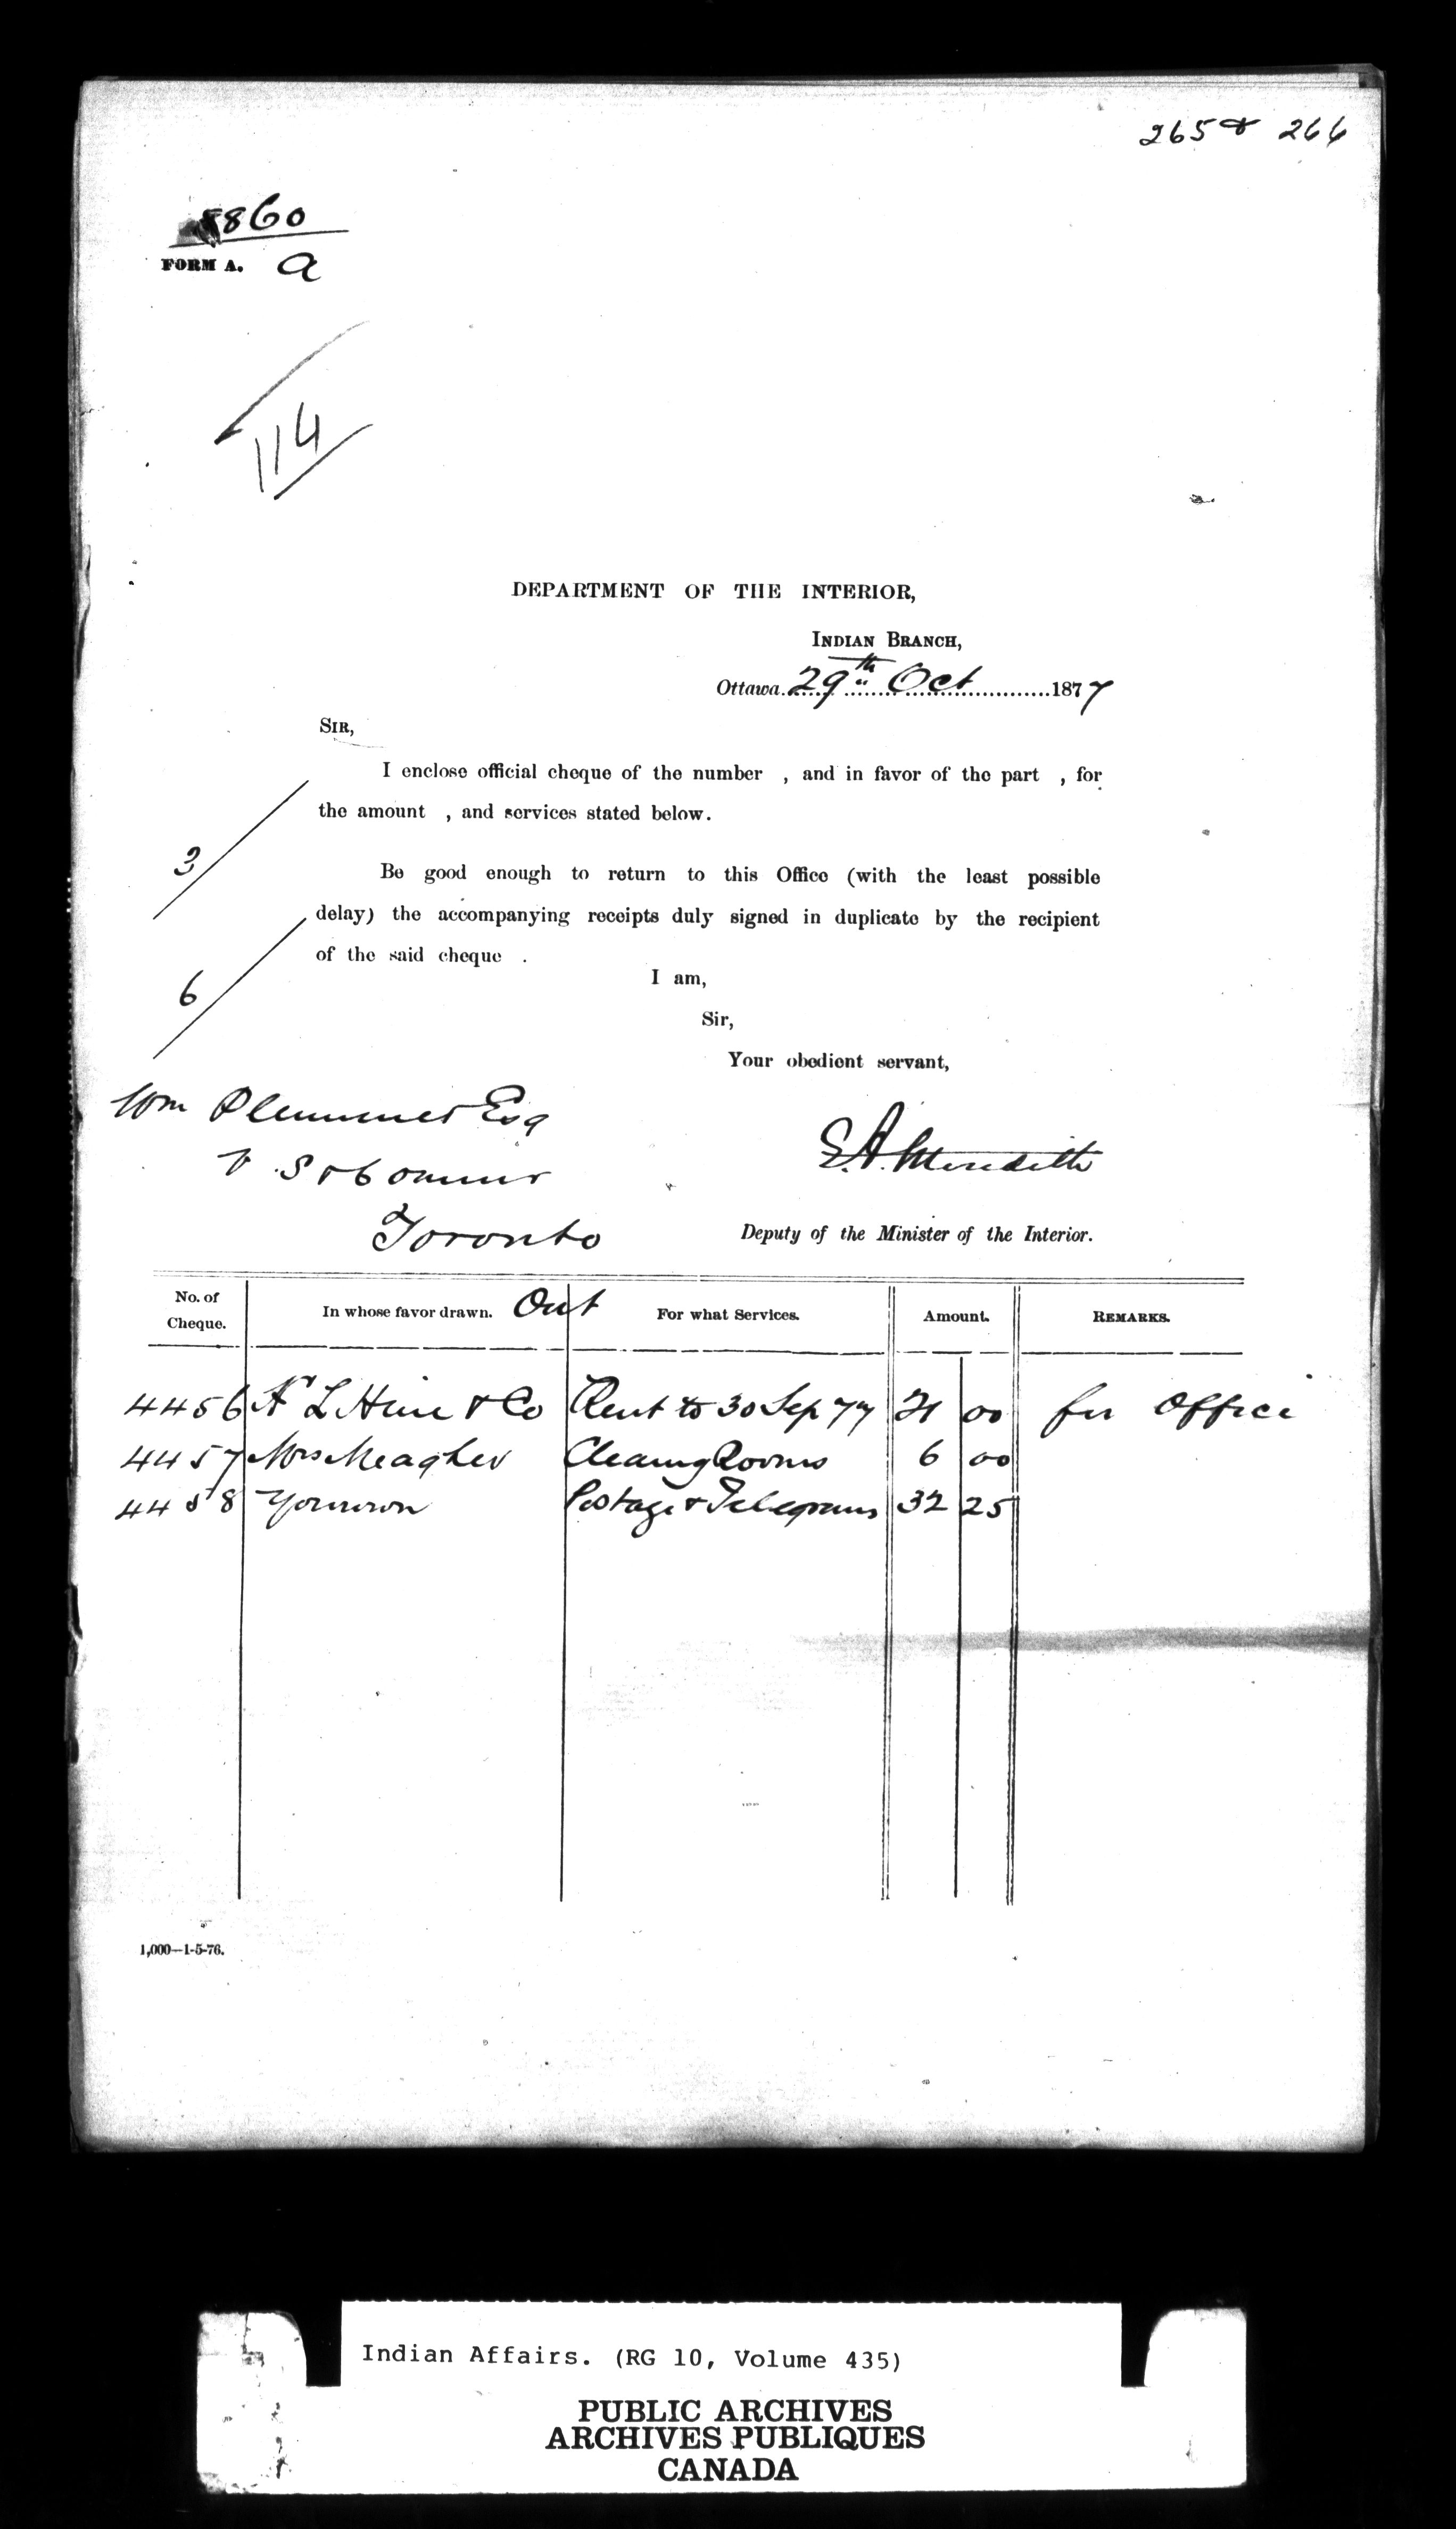 265 & 266
8860
FORM A. a
114
DEPARTMENT OF THE INTERIOR,
INDIAN BRANCH,
Ottawa 29th Oct 1877
SIR,
I enclose official cheque of the number , and in favor of the part , for
the amount , and services stated below.
3
Be good enough to return to this Office (with the least possible
delay) the accompanying receipts duly signed in duplicate by the recipient
of the said cheque .
6
I am,
Sir,
Your obedient servant,
Wm Plummer Esq
E.A. Meredith
Toronto
Deputy of the Minister of the Interior.
No. of Cheque. In whose favor drawn. Ont For what Services. Amount. REMARKS.
4456 L Hime & Co Rent to 30 Sep 77 21 00 for Office
4457 Mrs Meagher Cleaning Rooms 6 00
4458 Postage & Telegrams 32 25
1,000—1-5-76.
Indian Affairs. (RG 10, Volume 435)
PUBLIC ARCHIVES
ARCHIVES PUBLIQUES
CANADA